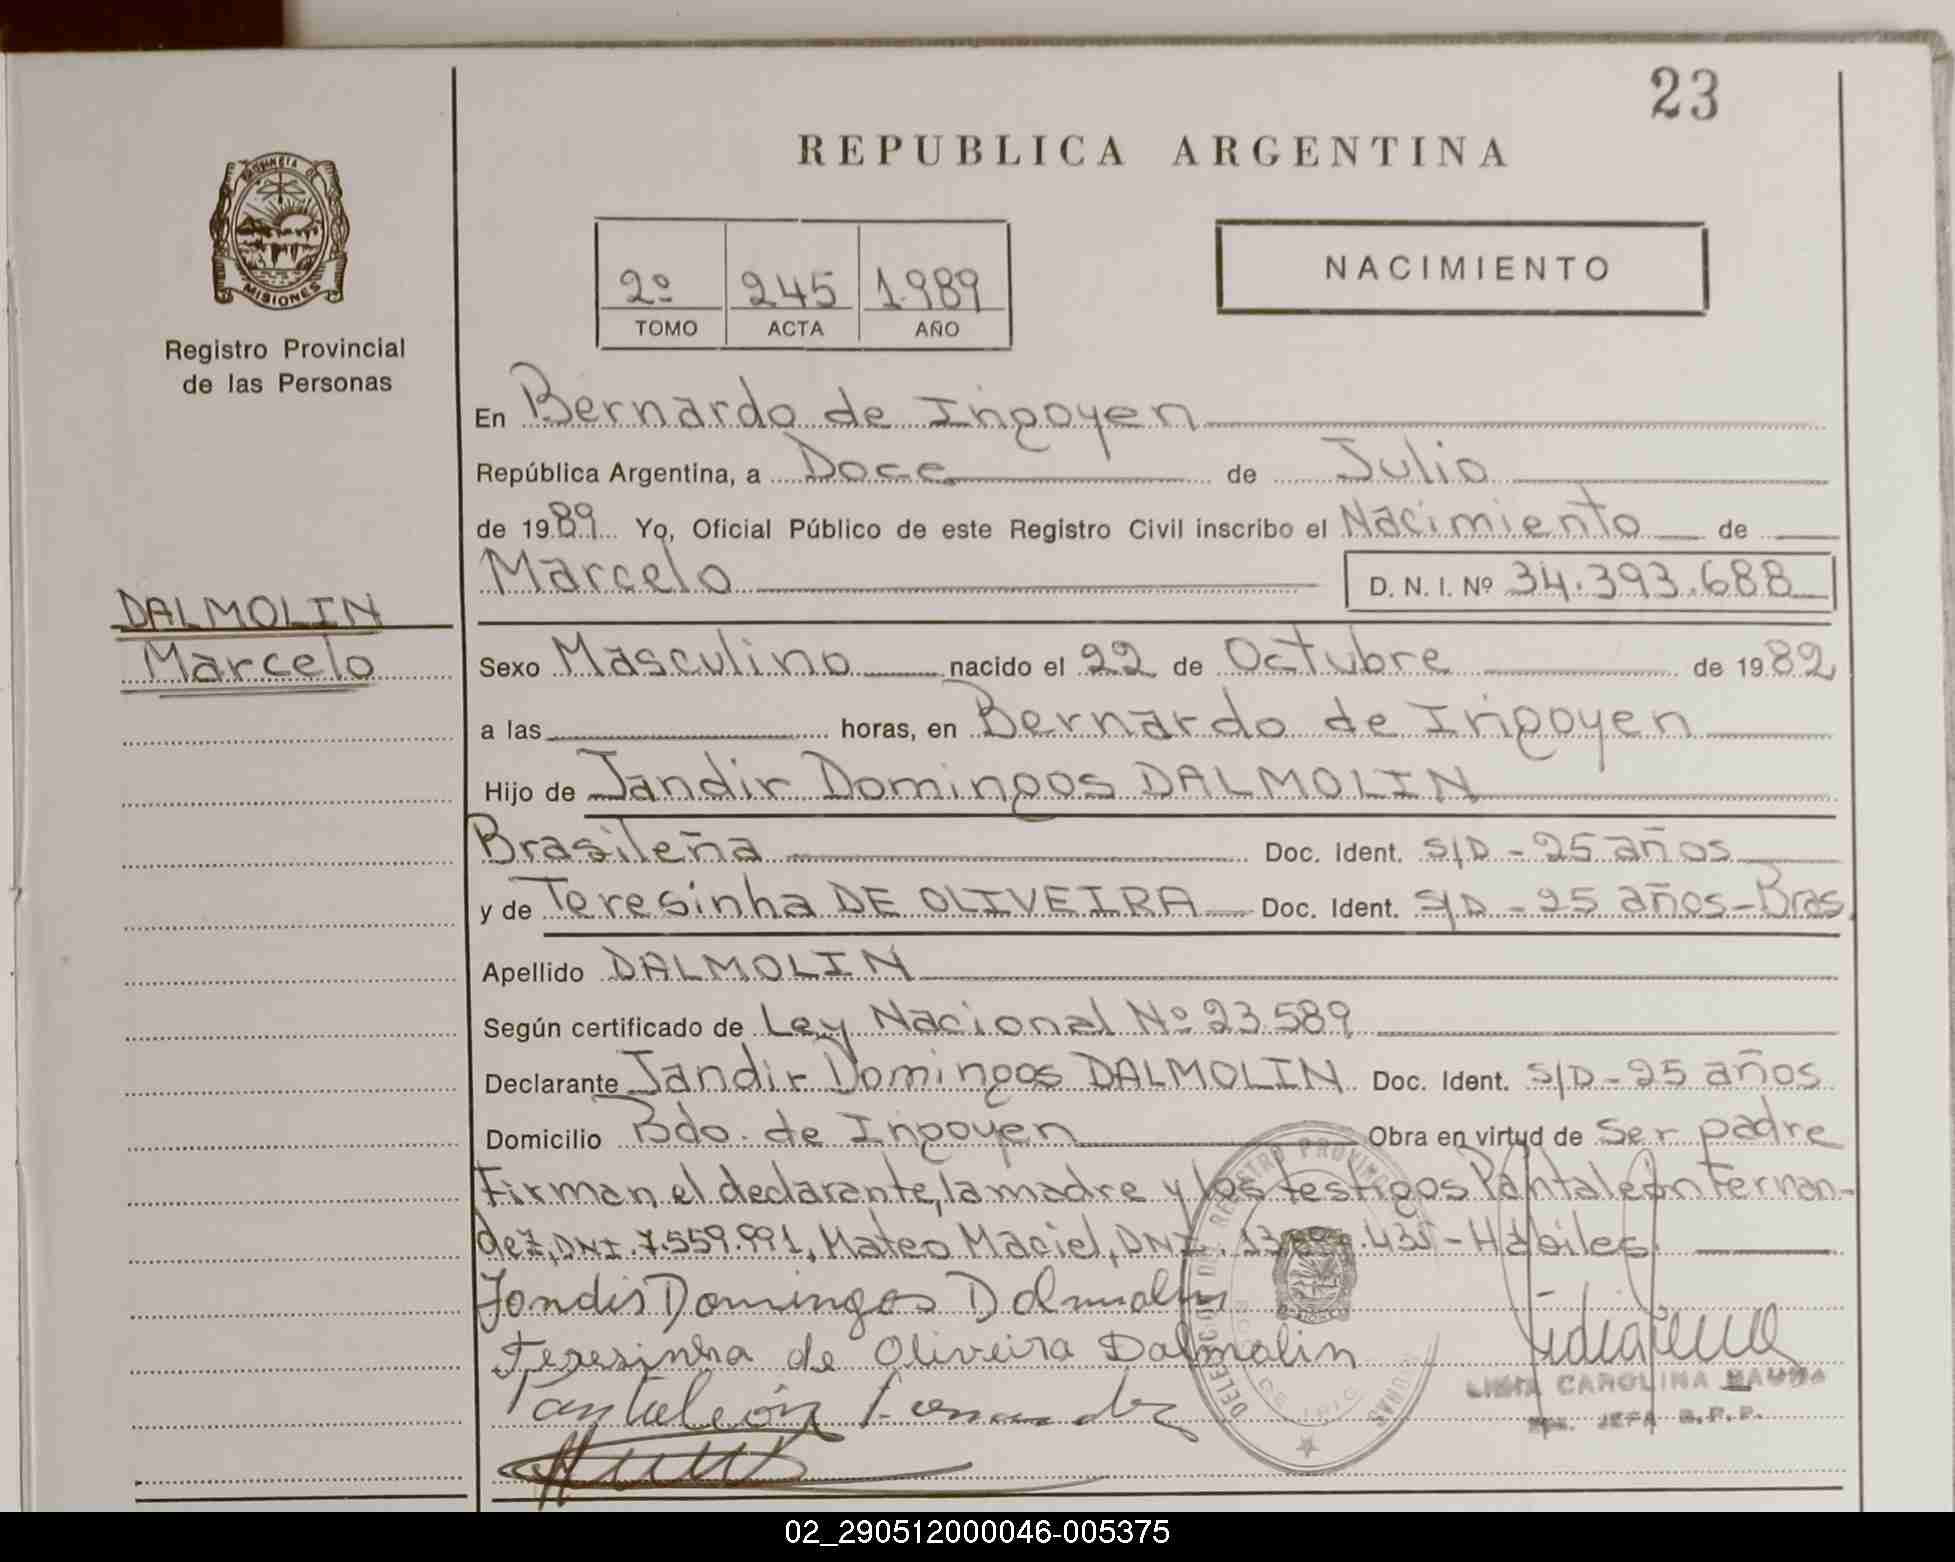 23
REPUBLICA ARGENTINA
PROVINCIA DE
MISIONES
Registro Provincial
de las Personas
2º 245 1989
TOMO ACTA AÑO
NACIMIENTO
En Bernardo de Irigoyen
República Argentina, a Doce de Julio
de 1989 Yo, Oficial Público de este Registro Civil inscribo el Nacimiento de
Marcelo D. N. I. Nº 34.393.688
DALMOLIN
Marcelo
Sexo Masculino nacido el 22 de Octubre de 1982
a las horas, en Bernardo de Irigoyen
Hijo de Jandir Domingos DALMOLIN
Brasileña Doc. Ident. S/D - 25 años
y de Teresinha DE OLIVEIRA Doc. Ident. S/D - 25 años - Bras.
Apellido DALMOLIN
Según certificado de Ley Nacional Nº 23.589
Declarante Jandir Domingos DALMOLIN Doc. Ident. S/D - 25 años
Domicilio Bdo. de Irigoyen Obra en virtud de Ser padre
Firman el declarante, la madre y los testigos Pantaleón Fernan-
dez, DNI. 7.559.991, Mateo Maciel, DNI. - Hábiles.
Jandir Domingos Dalmolin
Teresinha de Oliveira Dalmolin
Pantaleón Fernandez
CAROLINA
JEFA R.P.P.
02_290512000046-005375